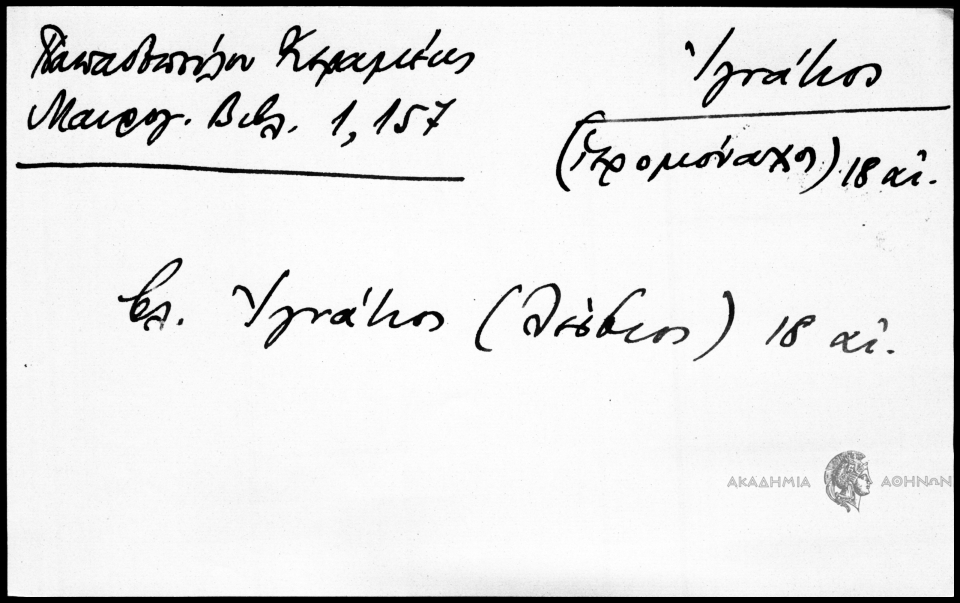 Παπαδοπούλου Κεραμέως
Μαυρογ. Βιβλ. 1, 157
Ἰγνάτιος
(ἱερομόναχος) 18 αἰ.
βλ. Ἰγνάτιος (Λέσβιος) 18 αἰ.
ΑΚΑΔΗΜΙΑ ΑΘΗΝΩΝ